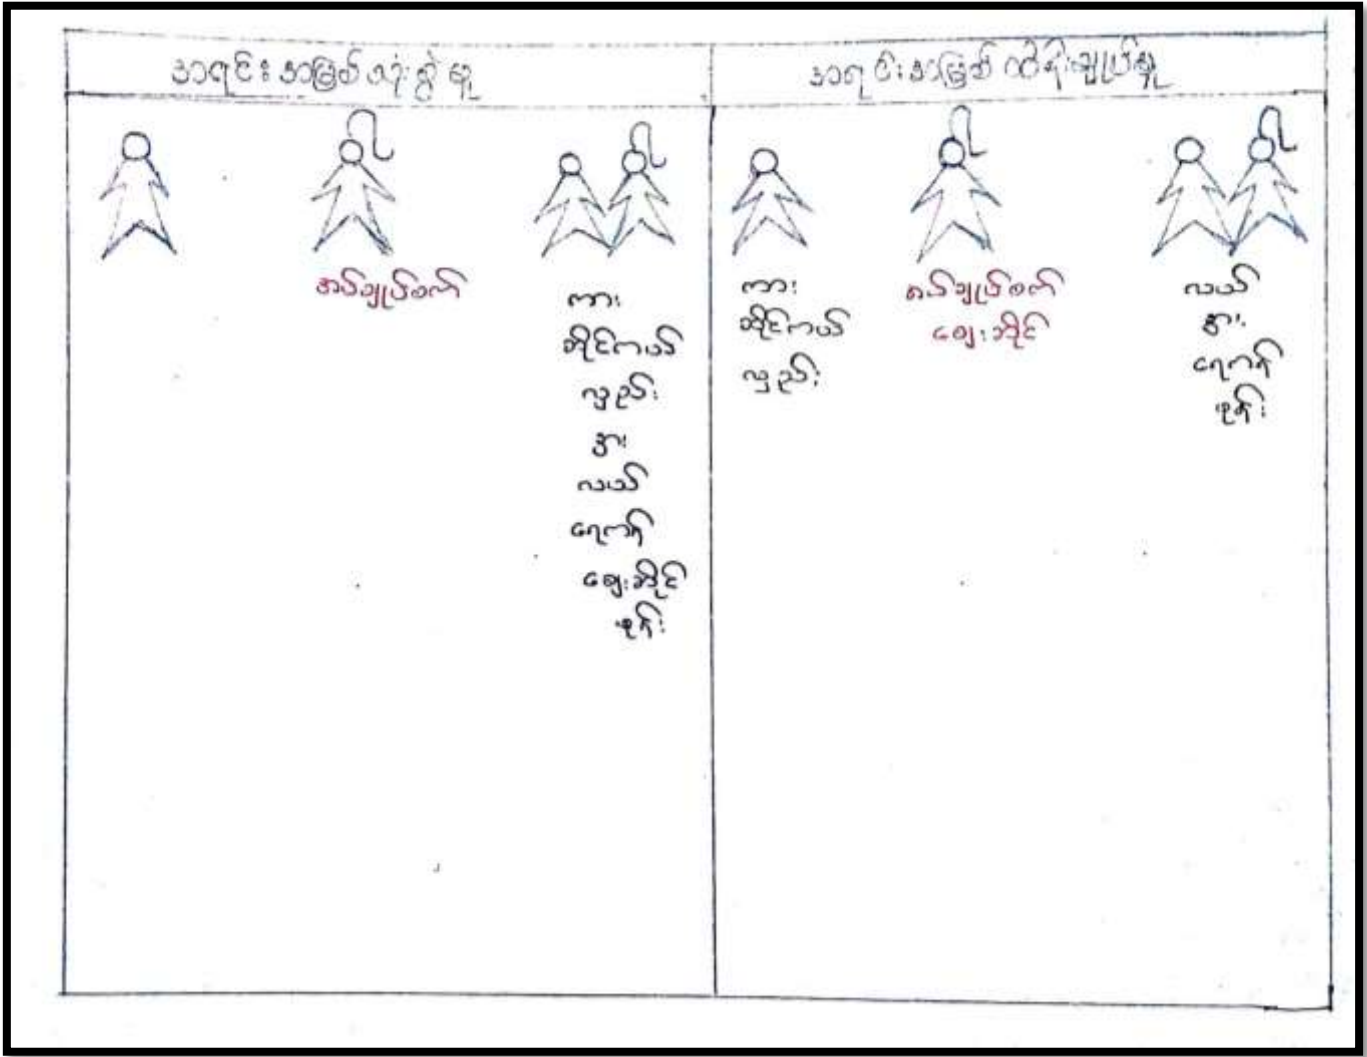 အရင်းအမြစ်သုံးစွဲမှု
အရင်းအမြစ်ထိန်းချုပ်မှု
အပ်ချုပ်စက်
ကား
ဆိုင်ကယ်
လှည်း
နွား
လယ်
ရေကန်
ဈေးဆိုင်
ဖုန်း
ကား
ဆိုင်ကယ်
လှည်း
စပ်ချုပ်စက်
ဈေးဆိုင်
လယ်
နွား
ရေကန်
ဖုန်း